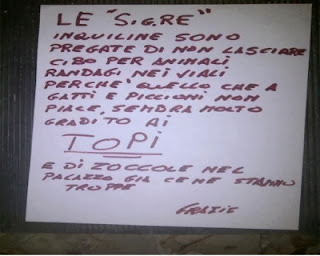 LE "SIG.RE"
INQUILINE SONO
PREGATE DI NON LASCIARE
CIBO PER ANIMALI
RANDAGI NEI VIALI
PERCHE' QUELLO CHE A
GATTI E PICCIONI NON
PIACE, SEMBRA MOLTO
GRADITO AI
TOPI
E DI ZOCCOLE NEL
PALAZZO GIA CE NE STANNO
TROPPE
GRAZIE